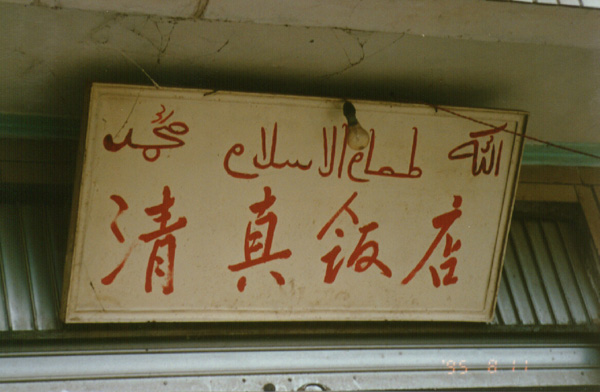 الله طعام الاسلام محمد
清真飯店
'95 8 11